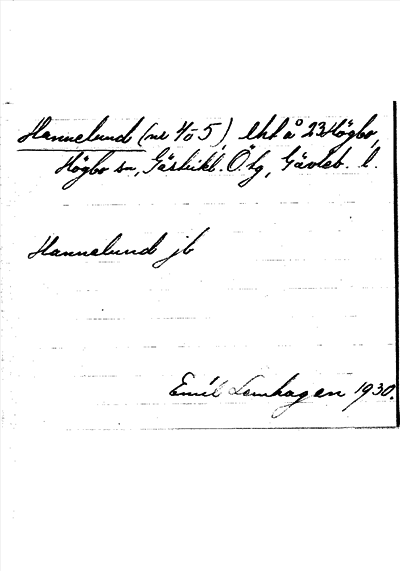 Hannelund (nr 4 o 5), lht å 23 Högbo,
Högbo sn, Gästrikl. Ö. tg, Gävleb. l.
Hannelund jb
Emil Lenhagen 1930.